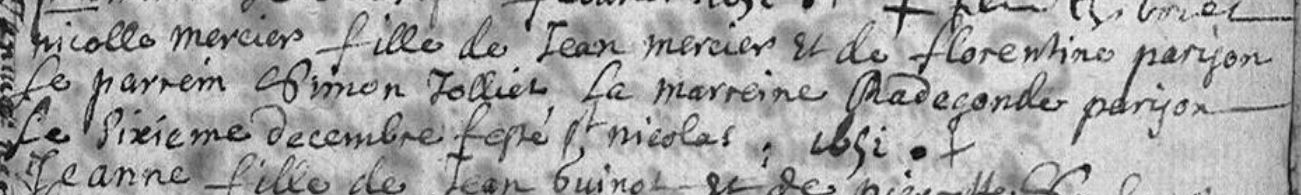 nicolle mercier fille de Jean mercier et de florentine parison
Le parrein Simon Jolliet La marreine Radegonde parison
Le Sixieme decembre festé St nicolas ; 1651 .
Jeanne fille de Jean Guinot et de